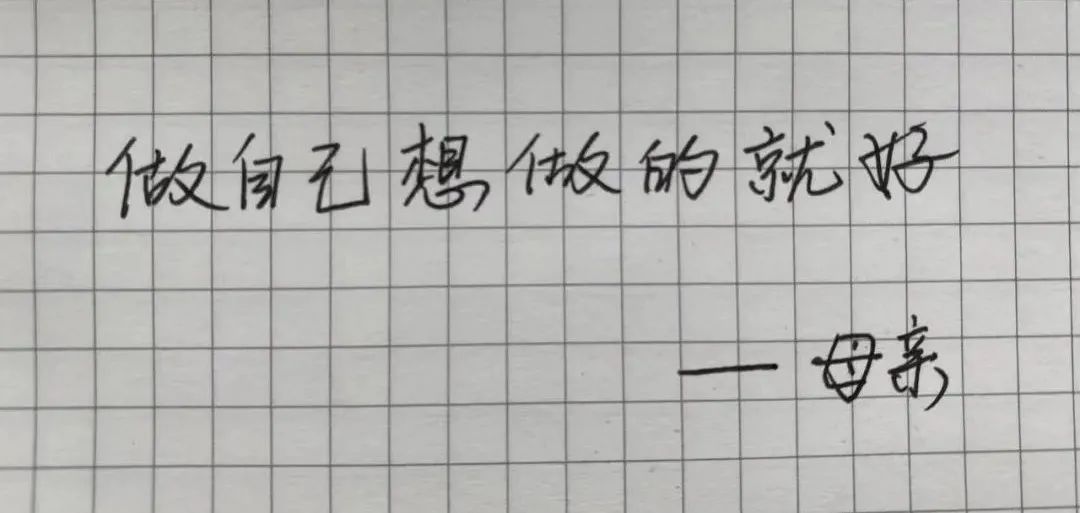 做自己想做的就好
— 母亲